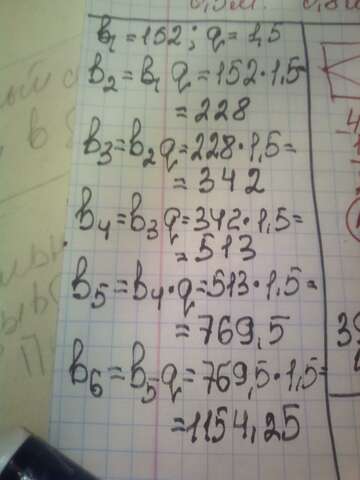 0,5м. 0,8
b₁ = 152; q = 1,5
b₂ = b₁ q = 152·1,5
= 228
b₃ = b₂ q = 228·1,5 =
= 342
b₄ = b₃ q = 342·1,5 =
= 513
b₅ = b₄·q = 513·1,5 =
= 769,5
b₆ = b₅ q = 769,5·1,5 =
= 1154,25